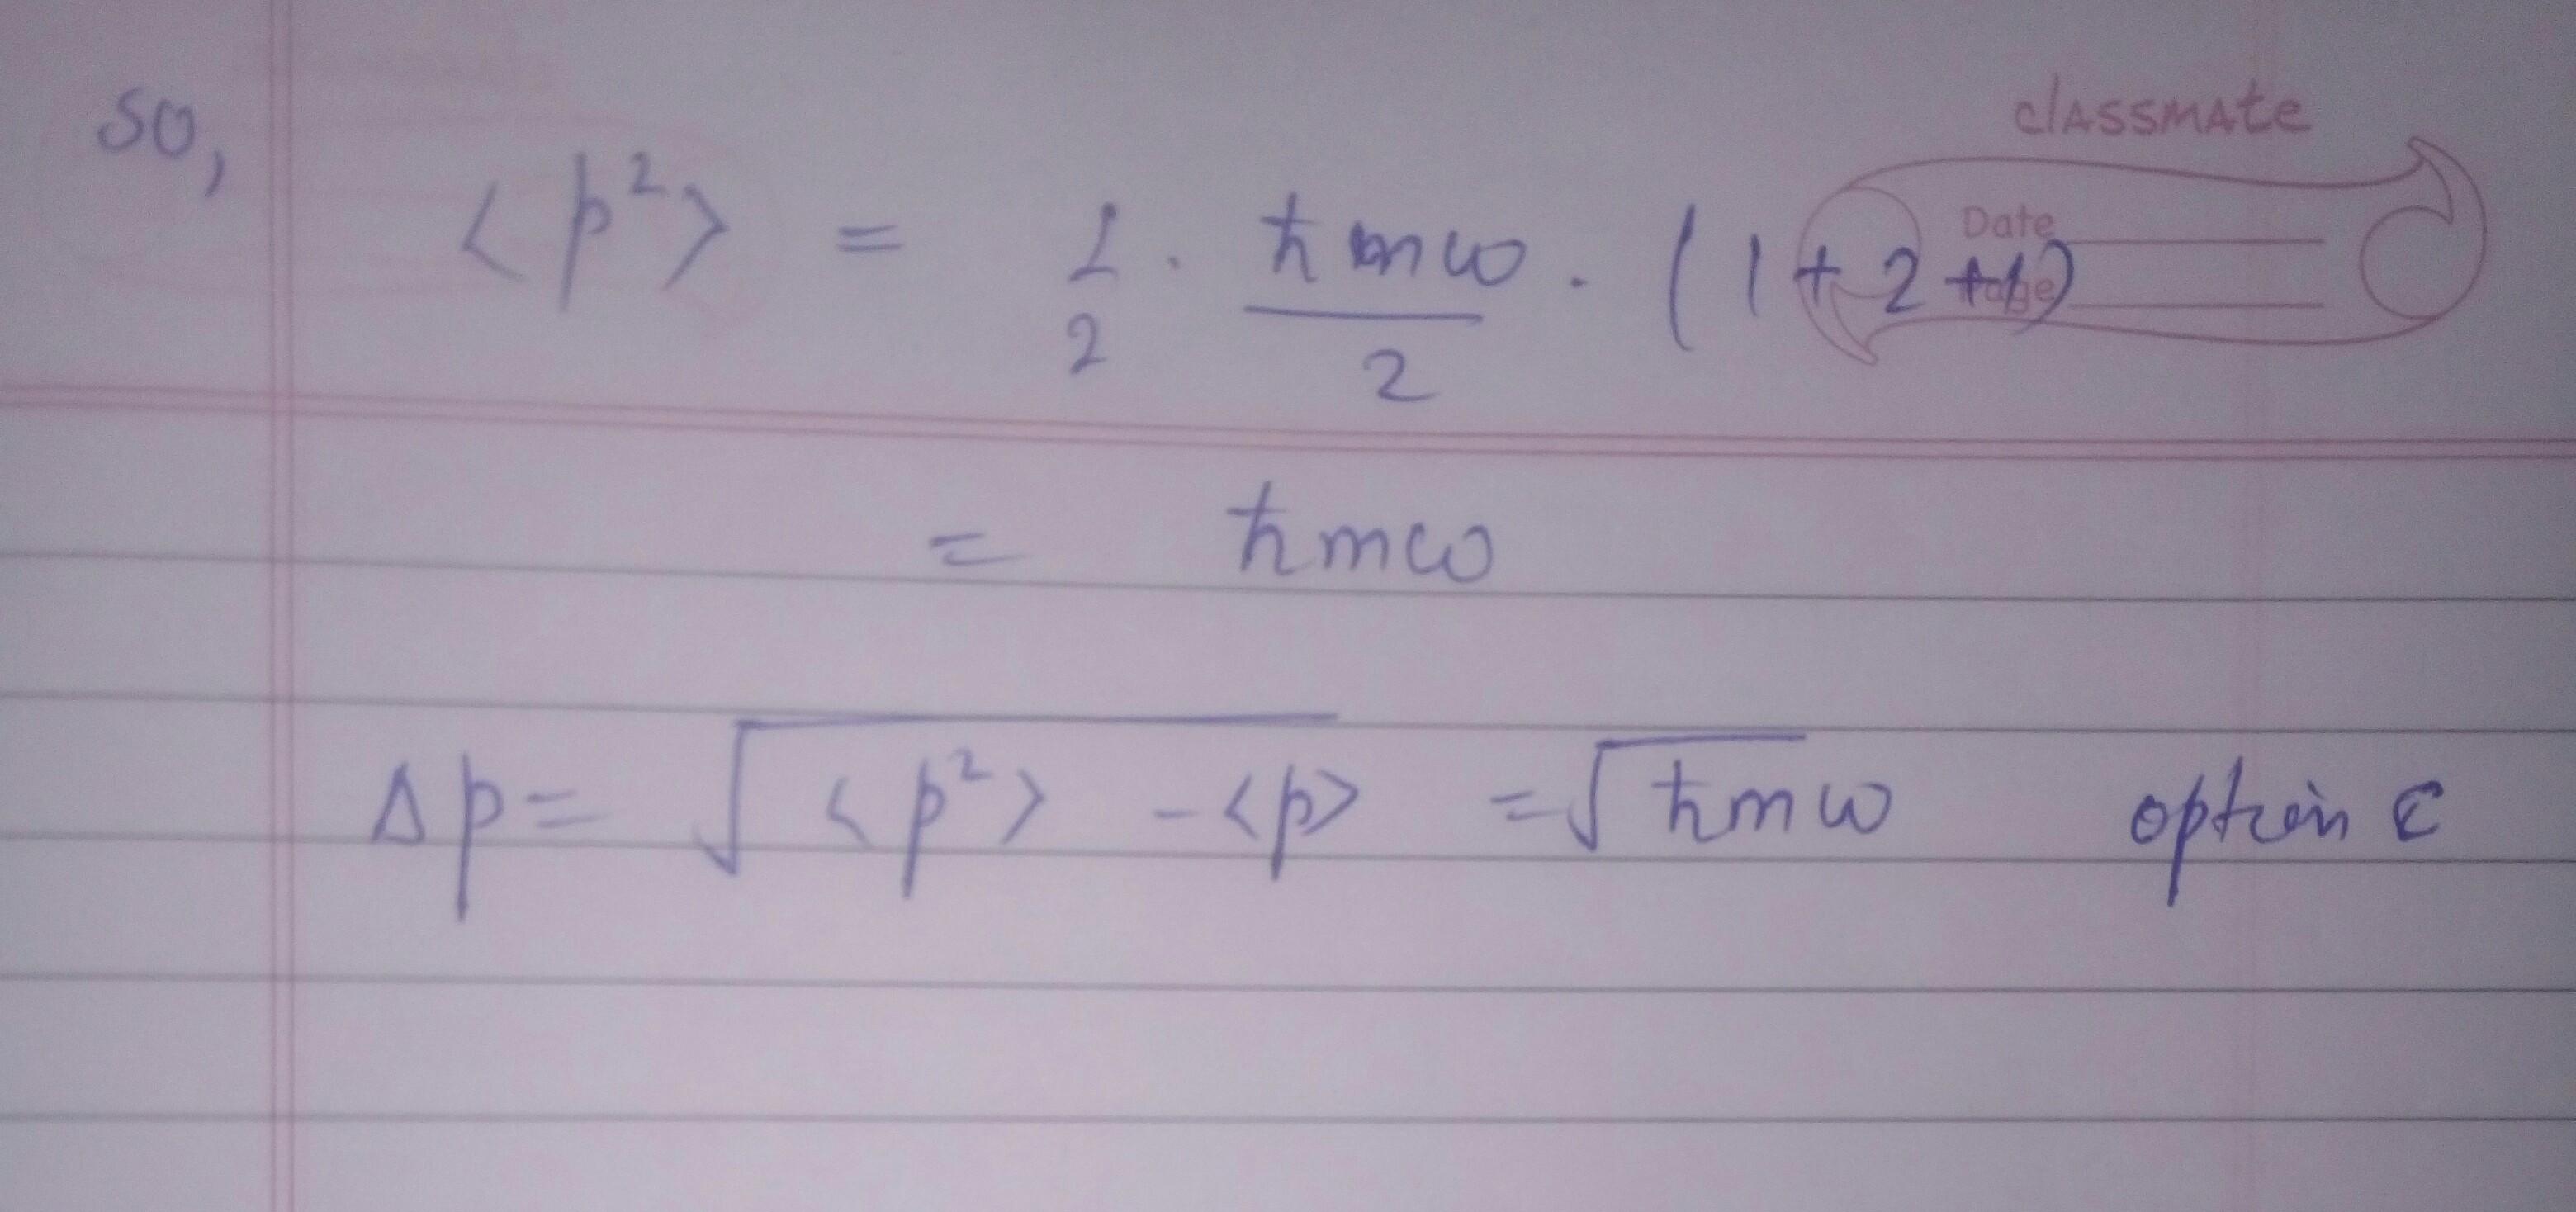 classmate
Date
Page
so,
⟨p²⟩ = 1/2 · ħmω/2 · (1 + 2 + 1)
= ħmω
Δp = √⟨p²⟩ - ⟨p⟩ = √ħmω option c